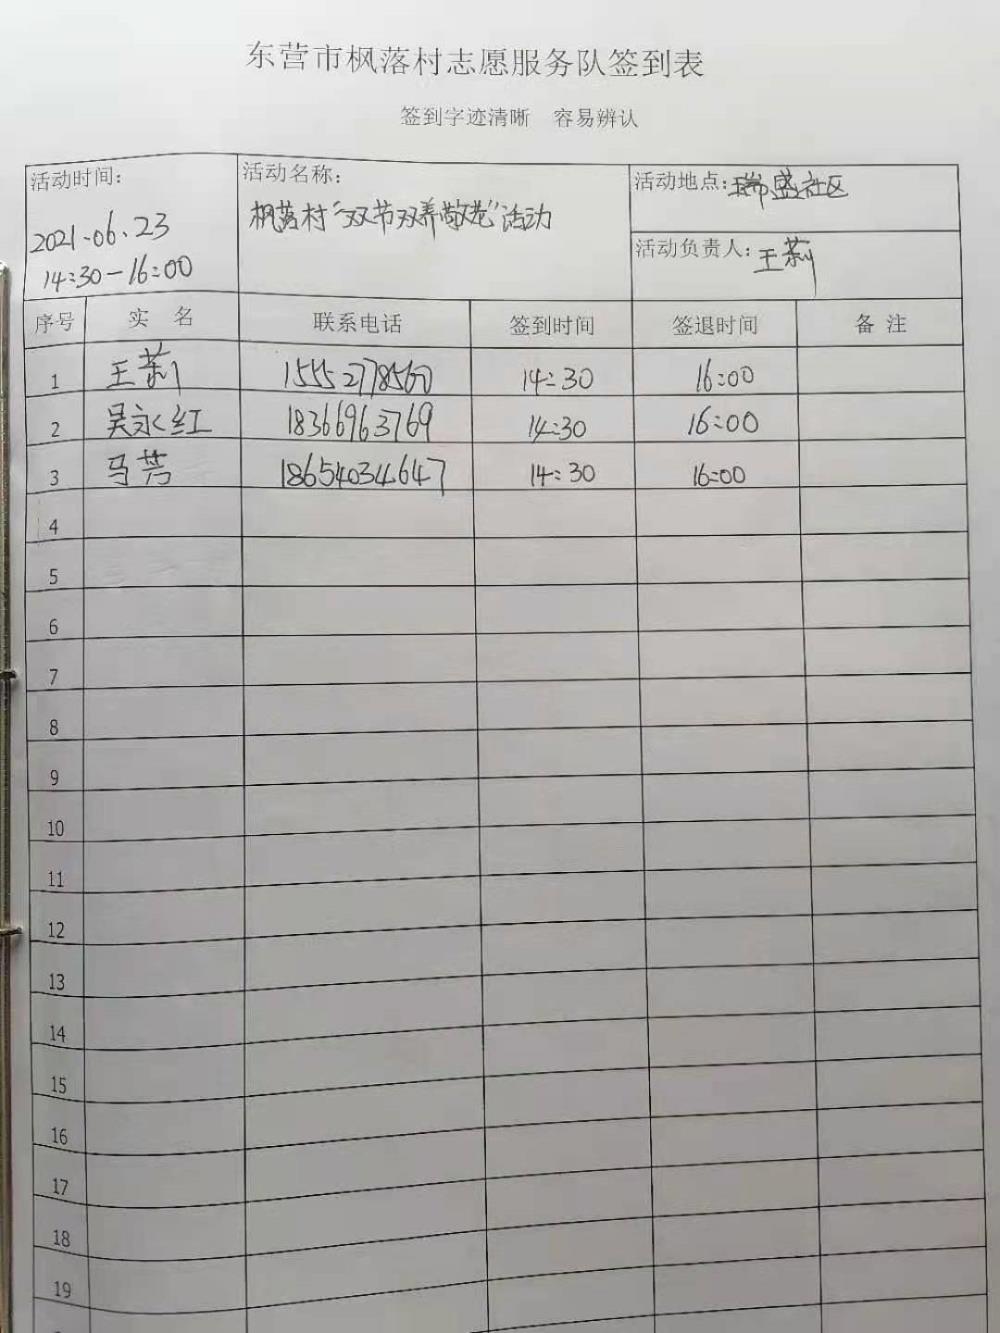 东营市枫落村志愿服务队签到表
签到字迹清晰 容易辨认
活动时间:
2021-06.23
14:30-16:00
活动名称:
枫落村“双节双养敬老”活动
活动地点:瑞盛社区
活动负责人:王莉
序号 实 名 联系电话 签到时间 签退时间 备 注
1 王莉 15552778560 14:30 16:00
2 吴永红 18366963769 14:30 16:00
3 马芳 18654034647 14:30 16:00
4
5
6
7
8
9
10
11
12
13
14
15
16
17
18
19